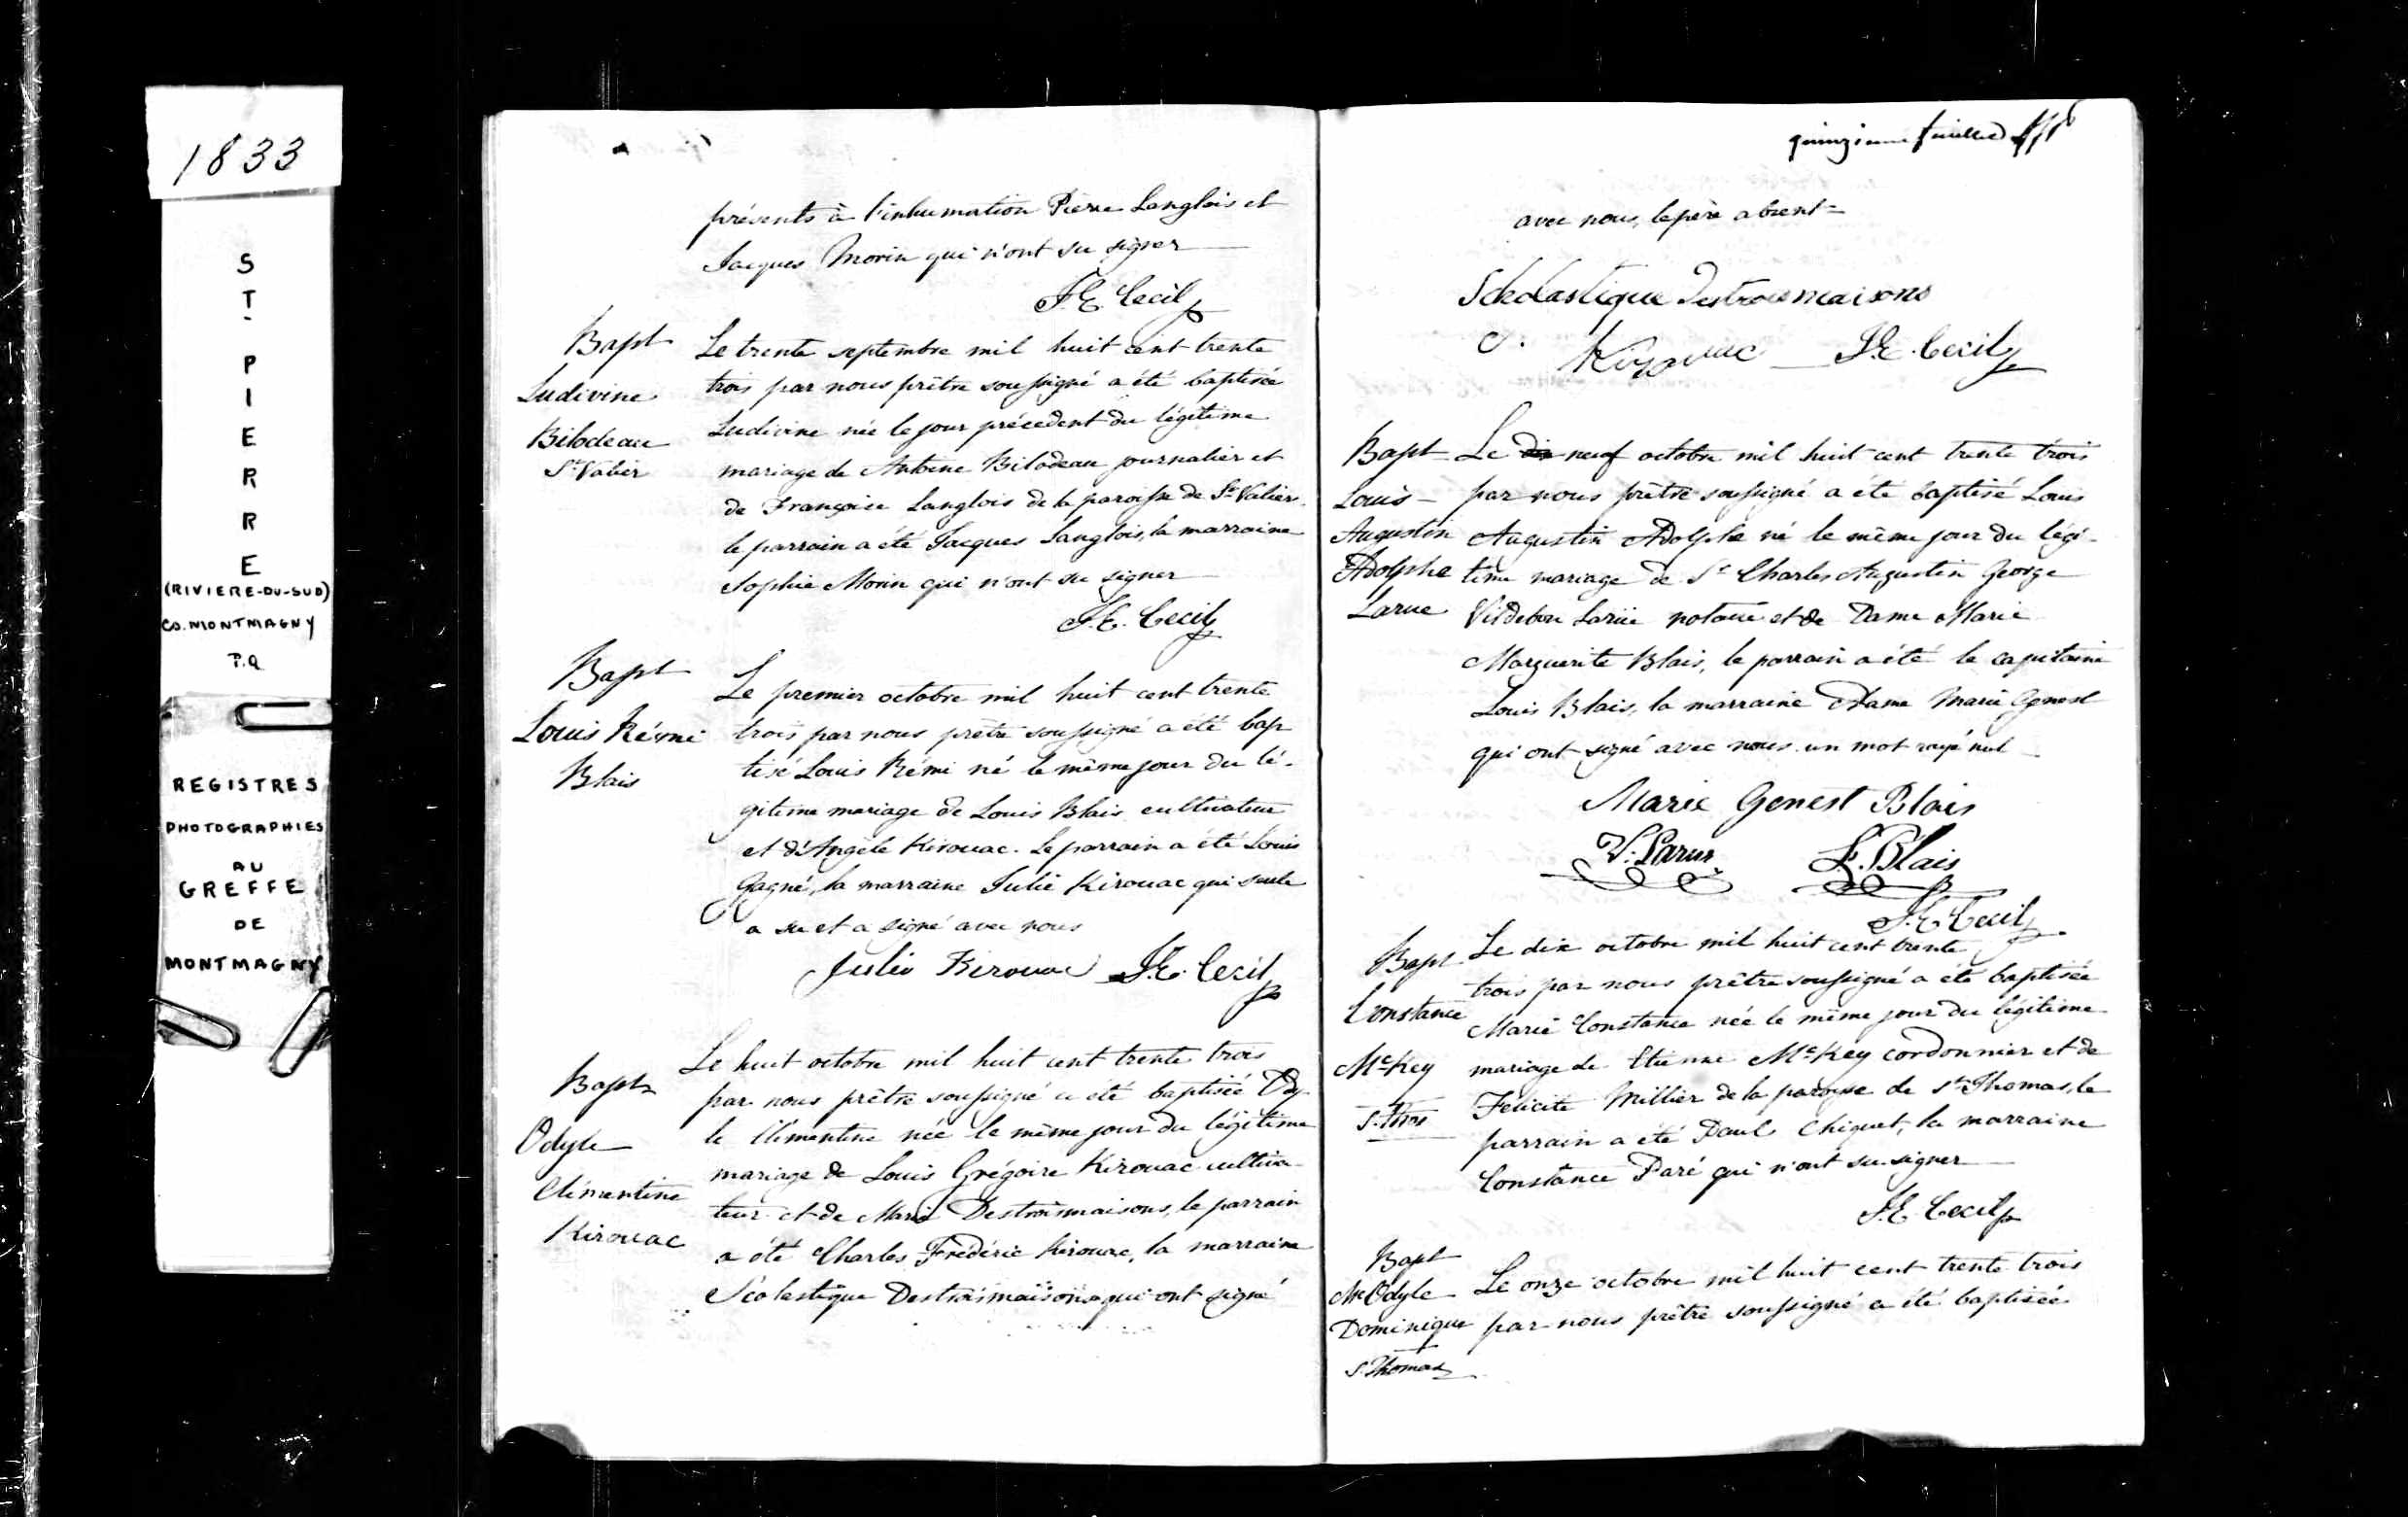 1833
ST-PIERRE
(RIVIERE-DU-SUD)
CO. MONTMAGNY
P.Q
REGISTRES
PHOTOGRAPHIES
AU
GREFFE
DE
MONTMAGNY
présents à l'inhumation Pierre Langlois et
Jacques Morin qui n'ont su signer
F.E. Cecil
Bapt
Ludivine
Bilodeau
St Valier
Le trente septembre mil huit cent trente
trois par nous prêtre soussigné a été baptisée
Ludivine née le jour précedent du légitime
mariage de Antoine Bilodeau journalier et
de Françoise Langlois de la paroisse de St Valier.
le parrain a été Jacques Langlois, la marraine
Sophie Morin qui n'ont su signer
F.E. Cecil
Bapt
Louis Rémi
Blais
Le premier octobre mil huit cent trente
trois par nous prêtre soussigné a été bap
tisé Louis Rémi né le même jour du lé-
gitime mariage de Louis Blais cultivateur
et d'Angèle Kirouac. Le parrain a été Louis
Gagné, la marraine Julie Kirouac qui seule
a su et a signé avec nous
Julie Kirouac F.E. Cecil
Bapt
Odyle
Clémentine
Kirouac
Le huit octobre mil huit cent trente trois
par nous prêtre soussigné a été baptisée Ody
le Clémentine née le même jour du légitime
mariage de Louis Grégoire Kirouac cultiva-
teur et de Marie Destroismaisons, le parrain
a été Charles Frédéric Kirouac, la marraine
Scolastique Destroismaisons qui ont signé
quinzieme feuillet
avec nous, le père absent =
Scholastique Destroismaisons
F.E. Cecil
Bapt
Louis
Augustin
Adolphe
Larue
Le dix neuf octobre mil huit cent trente trois
par nous prêtre soussigné a été baptisé Louis
Augustin Adolphe né le même jour du légi-
time mariage de Sr Charles Augustin George
Vildebon Larüe notaire et de Dame Marie
Marguerite Blais, le parrain a été le capitaine
Louis Blais, la marraine Dame Marie Genest
qui ont signé avec nous. un mot rayé nul
Marie Genest Blais
V. Larue L. Blais
F.E. Cecil
Bapt
Constance
McKey
S. Thos
Le dix octobre mil huit cent trente
trois par nous prêtre soussigné a été baptisée
Marie Constance née le même jour du légitime
mariage de Etienne McKey cordonnier et de
Felicité Millier de la paroisse de St Thomas, le
parrain a été Paul Chiquet, la marraine
Constance Paré qui n'ont su signer
F.E. Cecil
Bapt
M Odyle
Dominique
S. Thomas
Le onze octobre mil huit cent trente trois
par nous prêtre soussigné a été baptisée